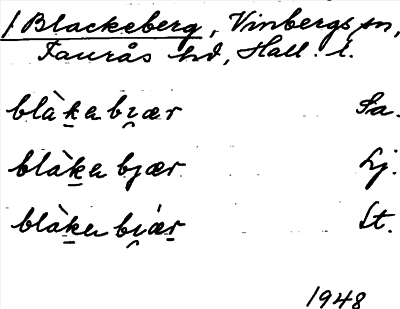 / Blackeberg, Vinbergs sn,
Faurås hd, Hall. l.
blàka bi̯ær Sa.
blàka bjær. Lj.
blàka bi̯ær St.
1948